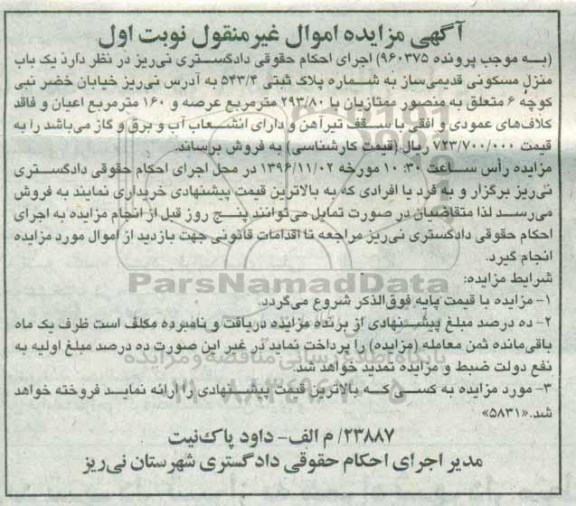 آگهی مزایده اموال غیرمنقول نوبت اول
(به موجب پرونده ۹۶۰۳۷۵) اجرای احکام حقوقی دادگستری نی‌ریز در نظر دارد یک باب
منزل مسکونی قدیمی‌ساز به شماره پلاک ثبتی ۵۴۳/۴ به آدرس نی‌ریز خیابان خضر نبی
کوچه ۶ متعلق به منصور ممتازیان با ۲۹۳/۸۰ مترمربع عرصه و ۱۶۰ مترمربع اعیان و فاقد
کلاف‌های عمودی و افقی با سقف تیرآهن و دارای انشعاب آب و برق و گاز می‌باشد را به
قیمت ۷۲۳/۷۰۰/۰۰۰ ریال (قیمت کارشناسی) به فروش برساند.
مزایده رأس ساعت ۱۰:۳۰ مورخه ۱۳۹۶/۱۱/۰۲ در محل اجرای احکام حقوقی دادگستری
نی‌ریز برگزار و به فرد یا افرادی که به بالاترین قیمت پیشنهادی خریداری نمایند به فروش
می‌رسد لذا متقاضیان در صورت تمایل می‌توانند پنج روز قبل از انجام مزایده به اجرای
احکام حقوقی دادگستری نی‌ریز مراجعه تا اقدامات قانونی جهت بازدید از اموال مورد مزایده
انجام گیرد.
ParsNamadData
شرایط مزایده:
۱- مزایده با قیمت پایه فوق‌الذکر شروع می‌گردد.
۲- ده درصد مبلغ پیشنهادی از برنده مزایده دریافت و نامبرده مکلف است ظرف یک ماه
باقی‌مانده ثمن معامله (مزایده) را پرداخت نماید در غیر این صورت ده درصد مبلغ اولیه به
پایگاه اطلاع رسانی مناقصه و مزایده
نفع دولت ضبط و مزایده تمدید خواهد شد.
۳- مورد مزایده به کسی که بالاترین قیمت پیشنهادی را ارائه نماید فروخته خواهد
شد.«۵۸۳۱»
۲۳۸۸۷/ م الف- داود پاک‌نیت
مدیر اجرای احکام حقوقی دادگستری شهرستان نی‌ریز